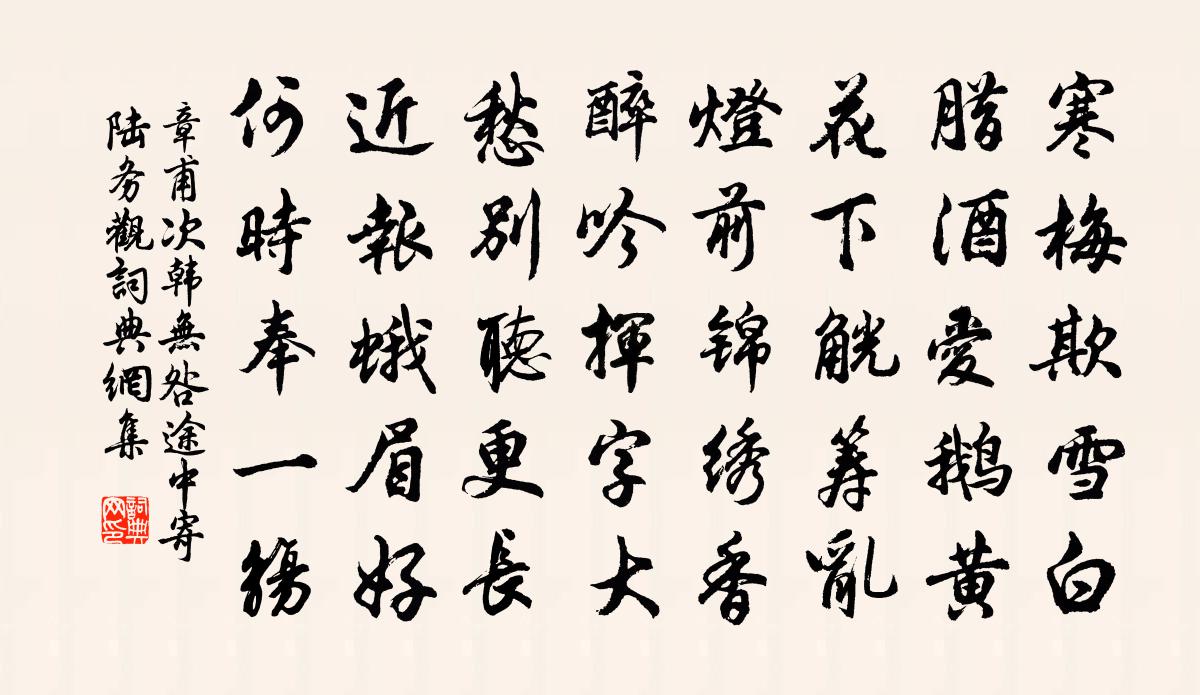 寒梅欺雪白
腊酒愛鵝黄
花下觥筹亂
燈前锦绣香
醉吟揮字大
愁別聽更長
近報蛾眉好
何時奉一觴
章甫次韩無咎途中寄
陆务觀詞典網集
詞典
网印